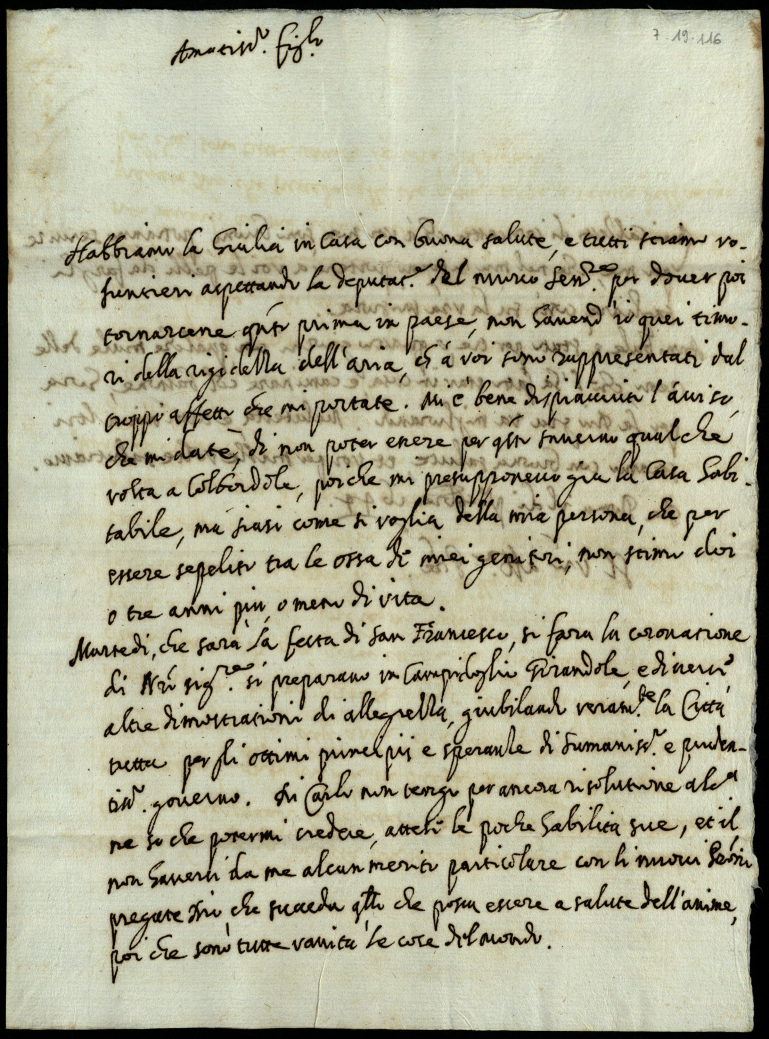 7 19.116
Amatiss.º figlo
Habbiamo la Giulia in Casa con buona salute, e tutti stiamo vo-
lentieri aspettando la deputat.e del nuovo Sen.re per dover poi
tornarcene qto prima in paese, non havend'io quei timo-
ri della rigidezza dell'aria, ch'à voi sono rappresentati dal
troppo affetto che mi portate. Mi è bene dispiaciuto l'aviso
che mi date, di non poter essere per qsto inverno qualche
volta a Colbordole, poiche mi presupponevo gia la Casa habi-
tabile, ma siasi come si voglia della mia persona, che per
essere sepelito tra le ossa di miei genitori, non stimo doi
o tre anni più, o meno di vita.
Martedi, che sarà la festa di San Francesco, si farà la coronatione
di Nro Sig.re si preparano in Campidoglio Girandole, e diverse
altre dimostrationi di allegrezza, giubilando veram.te la Città
tutta per gli ottimi principij e speranze di humaniss.º e pruden-
tiss.º governo. Di Carlo non tengo per ancora risolutione alc.a
ne so che potermi credere, attesi le poche habilità sue, et il
non haversi da me alcun merito particolare con li nuovi
pregate Dio che succeda qllo che possa essere a salute dell'anime,
poi che sono tutte vanità le cose del mondo.